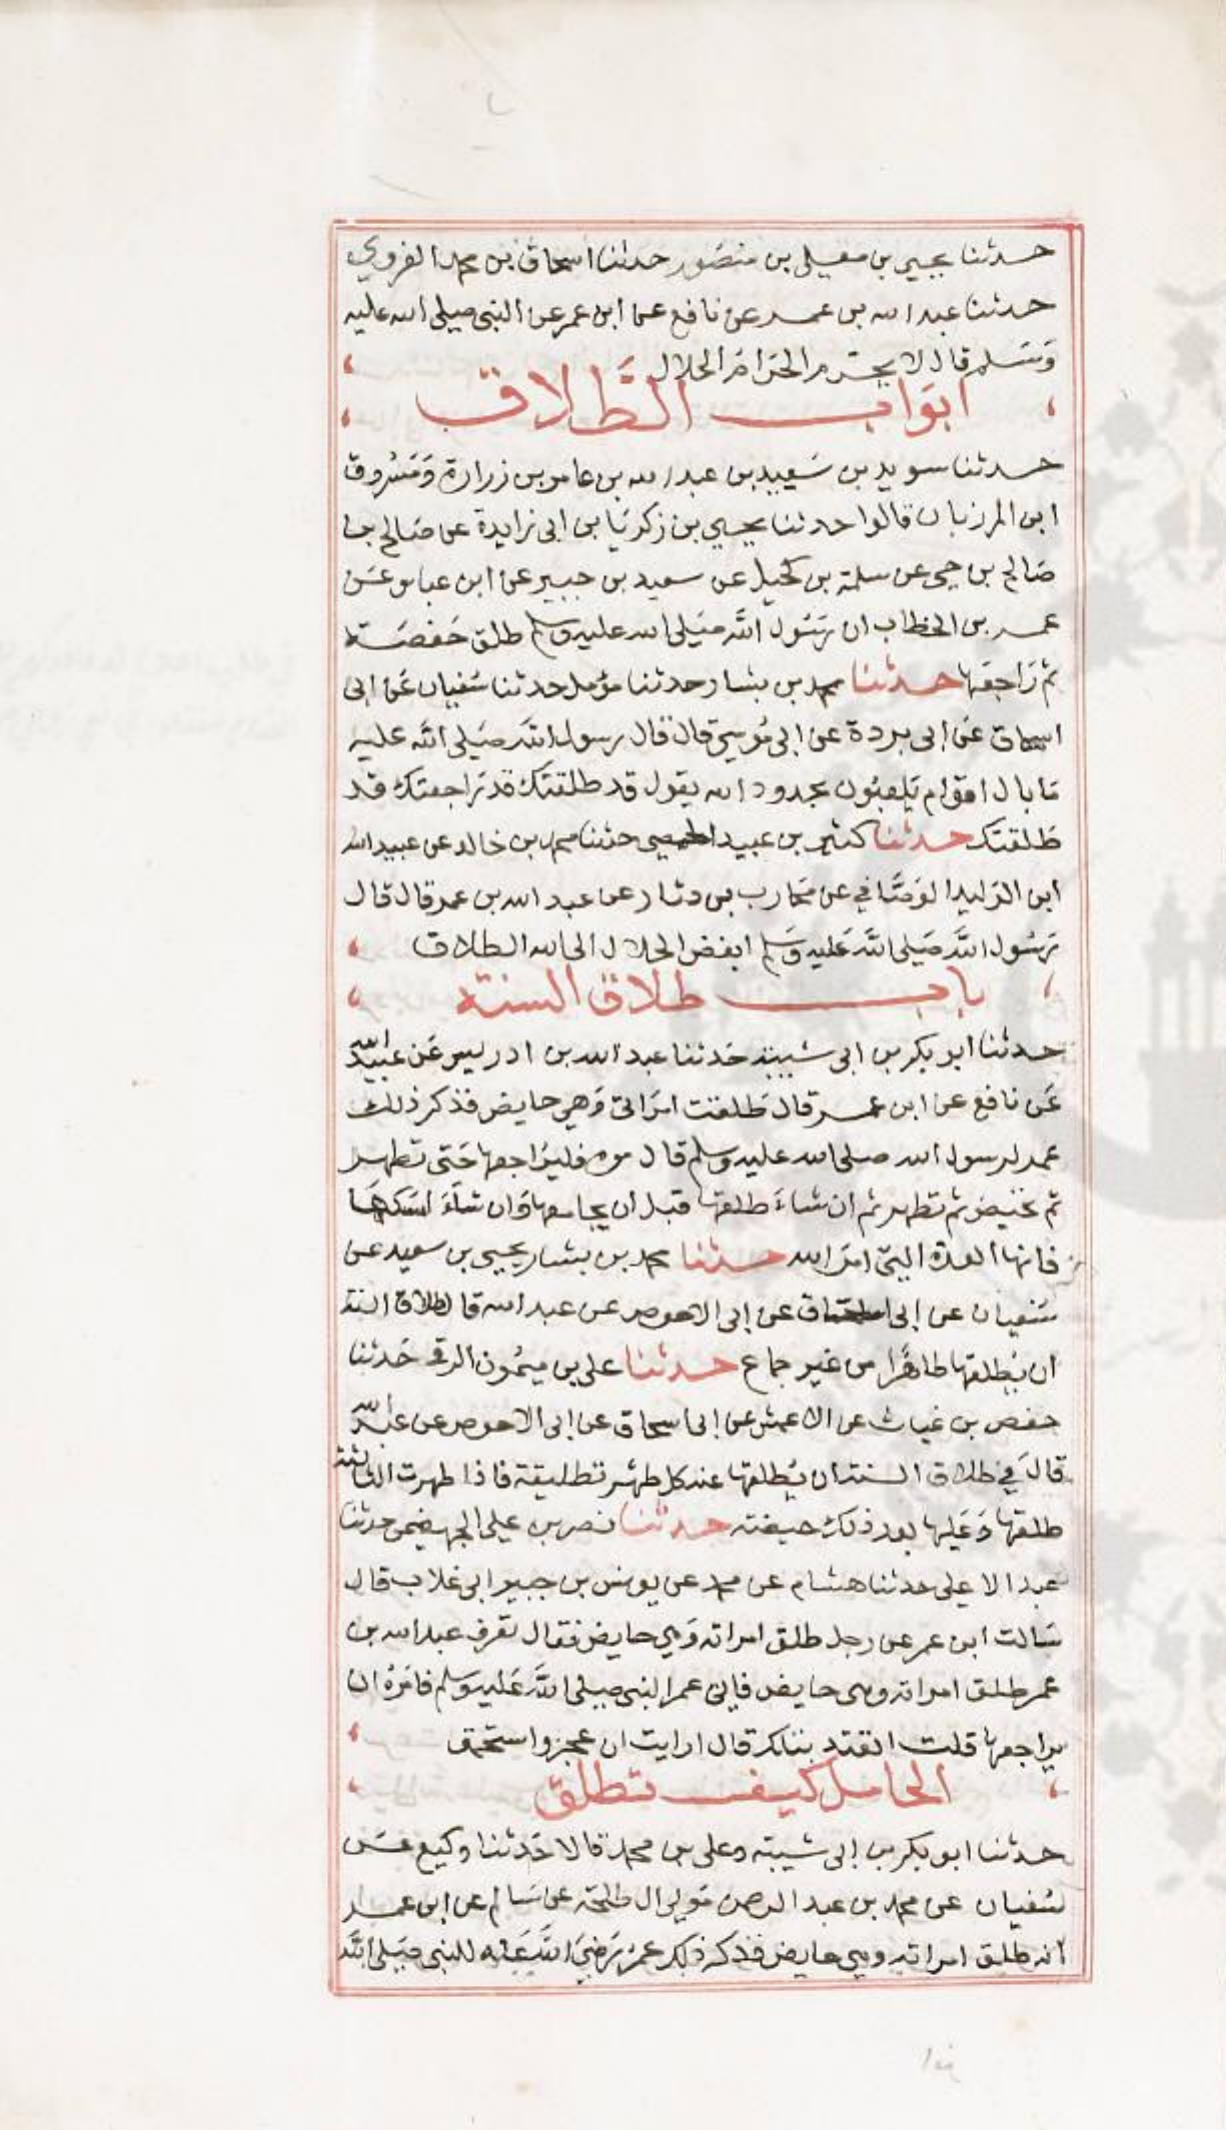 حدثنا يحيي بن معيلي بن منصور حدثنا اسحاق بن محمد الفروي
حدثنا عبد الله بن عمر عن نافع عن ابن عمر عن النبي صلي الله عليه
وسلم قال لا يحرم الحرام الحلال
ابواب الطلاق
حدثنا سويد بن سعيد بن عبد الله بن عامر بن زرارة ومسروق
ابن المرزبان قالوا حدثنا يحيي بن زكريا بن ابي زايدة عن صالح بن
صالح بن حي عن سلمة بن كحيل عن سعيد بن جبير عن ابن عباس عن
عمر بن الخطاب ان رسول الله صلي الله عليه وسلم طلق حفصة
ثم راجعها حدثنا محمد بن بشار حدثنا مؤمل حدثنا سفيان عن ابي
اسحاق عن ابي بردة عن ابي موسي قال قال رسول الله صلي الله عليه
ما بال اقوام يلعبون بحدود الله يقول قد طلقتك قد راجعتك قد
طلقتك حدثنا كثير بن عبيد الحمصي حدثنا محمد بن خالد عن عبيد الله
ابن الوليد الوصافي عن محارب بن دثار عن عبد الله بن عمر قال قال
رسول الله صلي الله عليه وسلم ابغض الحلال الى الله الطلاق
باب طلاق السنة
حدثنا ابو بكر بن ابي شيبة حدثنا عبد الله بن ادريس عن عبيد الله
عن نافع عن ابن عمر قال طلقت امراتي وهي حايض فذكر ذلك
عمر لرسول الله صلى الله عليه وسلم قال مره فليراجعها حتى تطهر
ثم تحيض ثم تطهر ثم ان شاء طلقها قبل ان يجامعها وان شاء امسكها
فانها العدة التي امر الله حدثنا محمد بن بشار يحيي بن سعيد عن
سفيان عن ابي اسحاق عن ابي الاحوص عن عبد الله قال طلاق السنة
ان يطلقها طاهرا من غير جماع حدثنا علي بن ميمون الرقي حدثنا
حفص بن غياث عن الاعمش عن ابي اسحاق عن ابي الاحوص عن عبد الله
قال في طلاق السنة ان يطلقها عند كل طهر تطليقة فاذا طهرت الثالثة
طلقها وعليها بعد ذلك حيضة حدثنا نصر بن علي الجهضمي حدثنا
عبد الاعلي حدثنا هشام عن محمد عن يونس بن جبير ابي غلاب قال
سالت ابن عمر عن رجل طلق امراته وهي حايض فقال تعرف عبد الله بن
عمر طلق امراته وهى حايض فاتى عمر النبي صلي الله عليه وسلم فامره ان
يراجعها قلت اتعتد بتلك قال ارايت ان عجز واستحمق
الحامل كيف تطلق
حدثنا ابو بكر بن ابي شيبة وعلي بن محمد قالا حدثنا وكيع عن
سفيان عن محمد بن عبد الرحمن مولى ال طلحة عن سالم عن ابن عمر
انه طلق امراته وهي حايض فذكر ذلك عمر رضي الله عنه للنبي صلي الله